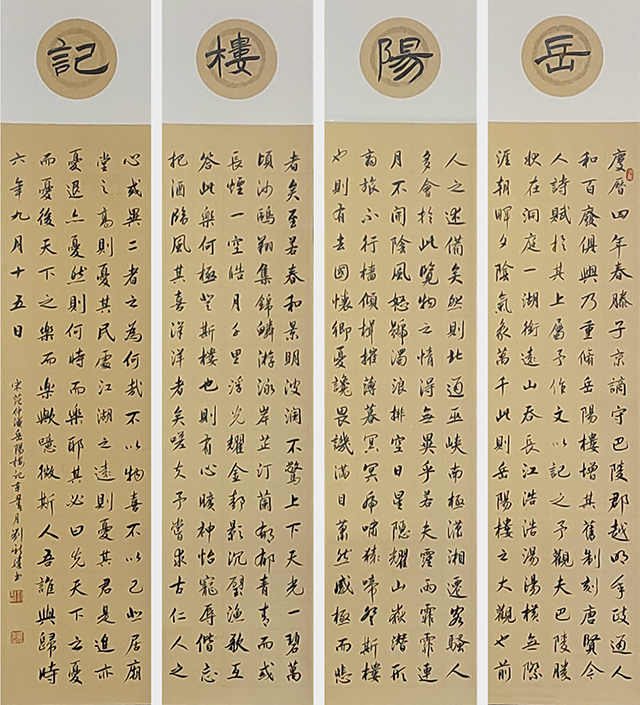 岳陽樓記
慶曆四年春滕子京謫守巴陵郡越明年政通人
和百廢俱興乃重修岳陽樓增其舊制刻唐賢今
人詩賦於其上屬予作文以記之予觀夫巴陵勝
狀在洞庭一湖銜遠山吞長江浩浩湯湯橫無際
涯朝暉夕陰氣象萬千此則岳陽樓之大觀也前
人之述備矣然則北通巫峽南極瀟湘遷客騷人
多會於此覽物之情得無異乎若夫霪雨霏霏連
月不開陰風怒號濁浪排空日星隱耀山嶽潛形
商旅不行檣傾楫摧薄暮冥冥虎嘯猿啼登斯樓
也則有去國懷鄉憂讒畏譏滿目蕭然感極而悲
者矣至若春和景明波瀾不驚上下天光一碧萬
頃沙鷗翔集錦鱗游泳岸芷汀蘭郁郁青青而或
長煙一空皓月千里浮光耀金靜影沉璧漁歌互
答此樂何極登斯樓也則有心曠神怡寵辱偕忘
把酒臨風其喜洋洋者矣嗟夫予嘗求古仁人之
心或異二者之為何哉不以物喜不以己悲居廟
堂之高則憂其民處江湖之遠則憂其君是進亦
憂退亦憂然則何時而樂耶其必曰先天下之憂
而憂後天下之樂而樂歟噫微斯人吾誰與歸時
六年九月十五日
宋范仲淹岳陽樓記 月劉 書